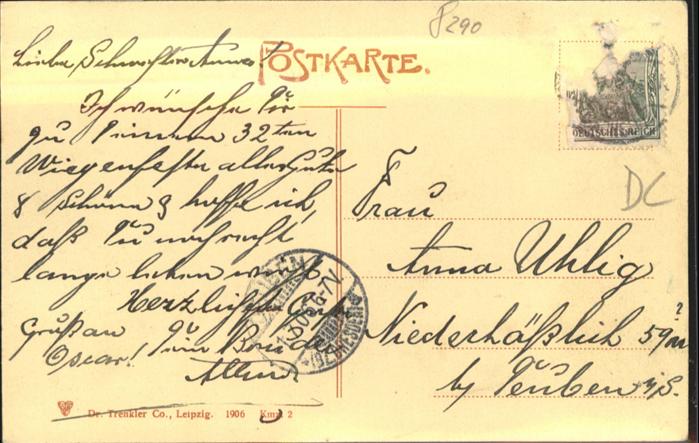 P290
POSTKARTE.
DEUTSCHES REICH
DC
Liebe Schwester Anna!
Ich wünsche Dir
zu Deinem 32ten
Wiegenfeste alles Gute
& Schöne & hoffe ich,
daß Du noch recht
lange leben wirst
Herzlichste
Gruß an Dein Bruder
Oscar!
Frau
Anna Uhlig
Niederhäßlich 59
by Deuben i/S.
Dr. Trenkler Co., Leipzig. 1906 2